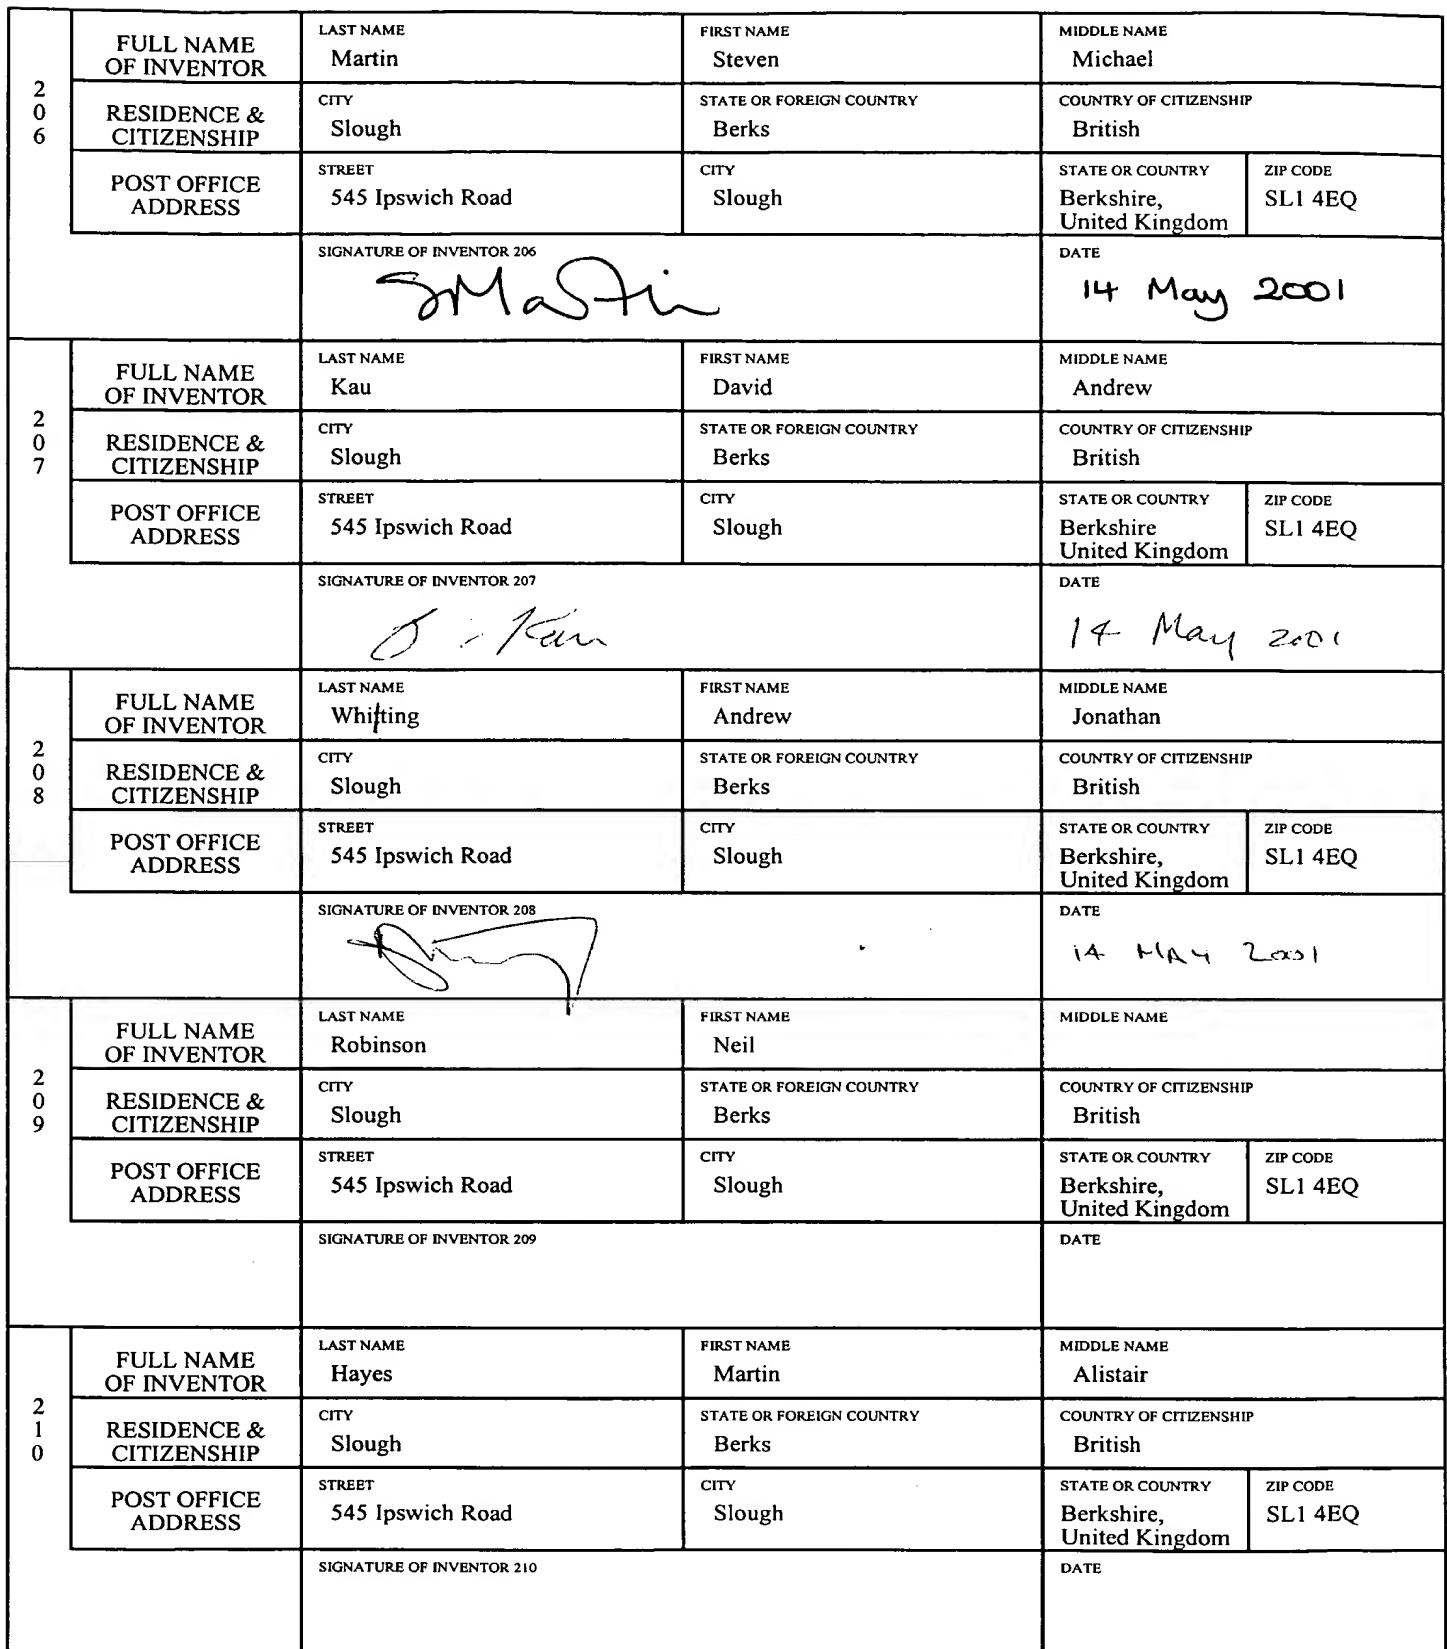 206
FULL NAME OF INVENTOR
LAST NAME
Martin
FIRST NAME
Steven
MIDDLE NAME
Michael
RESIDENCE & CITIZENSHIP
CITY
Slough
STATE OR FOREIGN COUNTRY
Berks
COUNTRY OF CITIZENSHIP
British
POST OFFICE ADDRESS
STREET
545 Ipswich Road
CITY
Slough
STATE OR COUNTRY
Berkshire,
United Kingdom
ZIP CODE
SL1 4EQ
SIGNATURE OF INVENTOR 206
SMartin
DATE
14 May 2001
207
FULL NAME OF INVENTOR
LAST NAME
Kau
FIRST NAME
David
MIDDLE NAME
Andrew
RESIDENCE & CITIZENSHIP
CITY
Slough
STATE OR FOREIGN COUNTRY
Berks
COUNTRY OF CITIZENSHIP
British
POST OFFICE ADDRESS
STREET
545 Ipswich Road
CITY
Slough
STATE OR COUNTRY
Berkshire
United Kingdom
ZIP CODE
SL1 4EQ
SIGNATURE OF INVENTOR 207
Kau
DATE
14 May 2001
208
FULL NAME OF INVENTOR
LAST NAME
Whitting
FIRST NAME
Andrew
MIDDLE NAME
Jonathan
RESIDENCE & CITIZENSHIP
CITY
Slough
STATE OR FOREIGN COUNTRY
Berks
COUNTRY OF CITIZENSHIP
British
POST OFFICE ADDRESS
STREET
545 Ipswich Road
CITY
Slough
STATE OR COUNTRY
Berkshire,
United Kingdom
ZIP CODE
SL1 4EQ
SIGNATURE OF INVENTOR 208
DATE
14 MAY 2001
209
FULL NAME OF INVENTOR
LAST NAME
Robinson
FIRST NAME
Neil
MIDDLE NAME
RESIDENCE & CITIZENSHIP
CITY
Slough
STATE OR FOREIGN COUNTRY
Berks
COUNTRY OF CITIZENSHIP
British
POST OFFICE ADDRESS
STREET
545 Ipswich Road
CITY
Slough
STATE OR COUNTRY
Berkshire,
United Kingdom
ZIP CODE
SL1 4EQ
SIGNATURE OF INVENTOR 209
DATE
210
FULL NAME OF INVENTOR
LAST NAME
Hayes
FIRST NAME
Martin
MIDDLE NAME
Alistair
RESIDENCE & CITIZENSHIP
CITY
Slough
STATE OR FOREIGN COUNTRY
Berks
COUNTRY OF CITIZENSHIP
British
POST OFFICE ADDRESS
STREET
545 Ipswich Road
CITY
Slough
STATE OR COUNTRY
Berkshire,
United Kingdom
ZIP CODE
SL1 4EQ
SIGNATURE OF INVENTOR 210
DATE